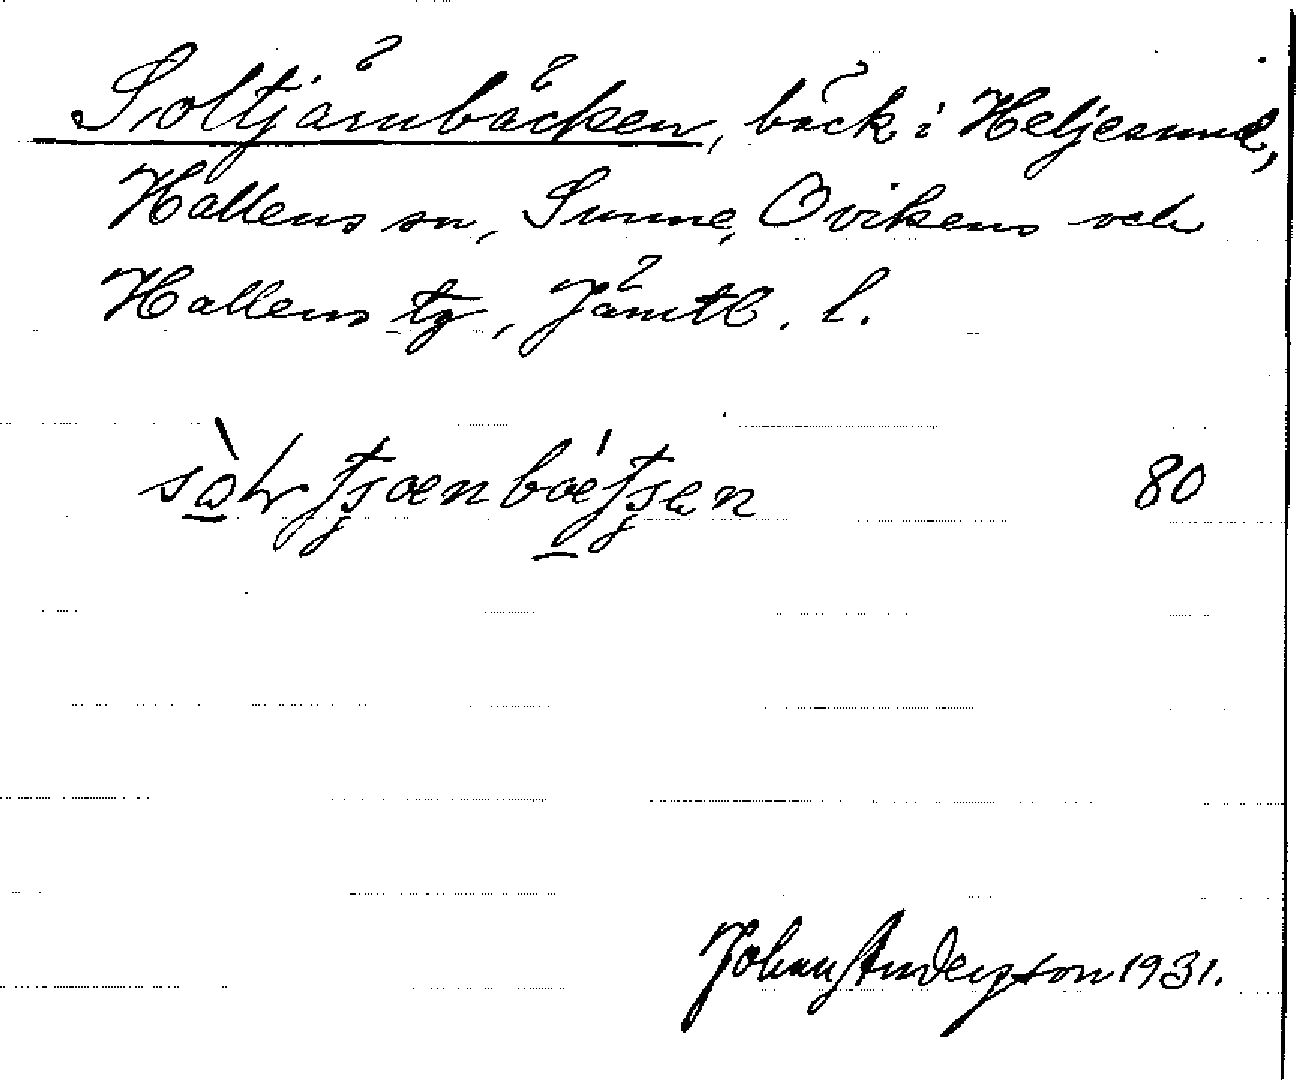 Soltjärnbäcken, bäck i Heljesund,
Hallens sn, Sunne, Ovikens och
Hallens tg, Jämtl. l.
80
Johan Andersson 1931.